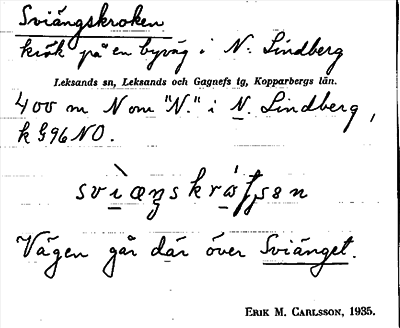 Sviängskroken
krök på en byväg i N. Lindberg
Leksands sn, Leksands och Gagnefs tg, Kopparbergs län.
400 m N om "N." i N. Lindberg,
k 896 NO.
Vägen går där över Sviänget.
ERIK M. CARLSSON, 1935.